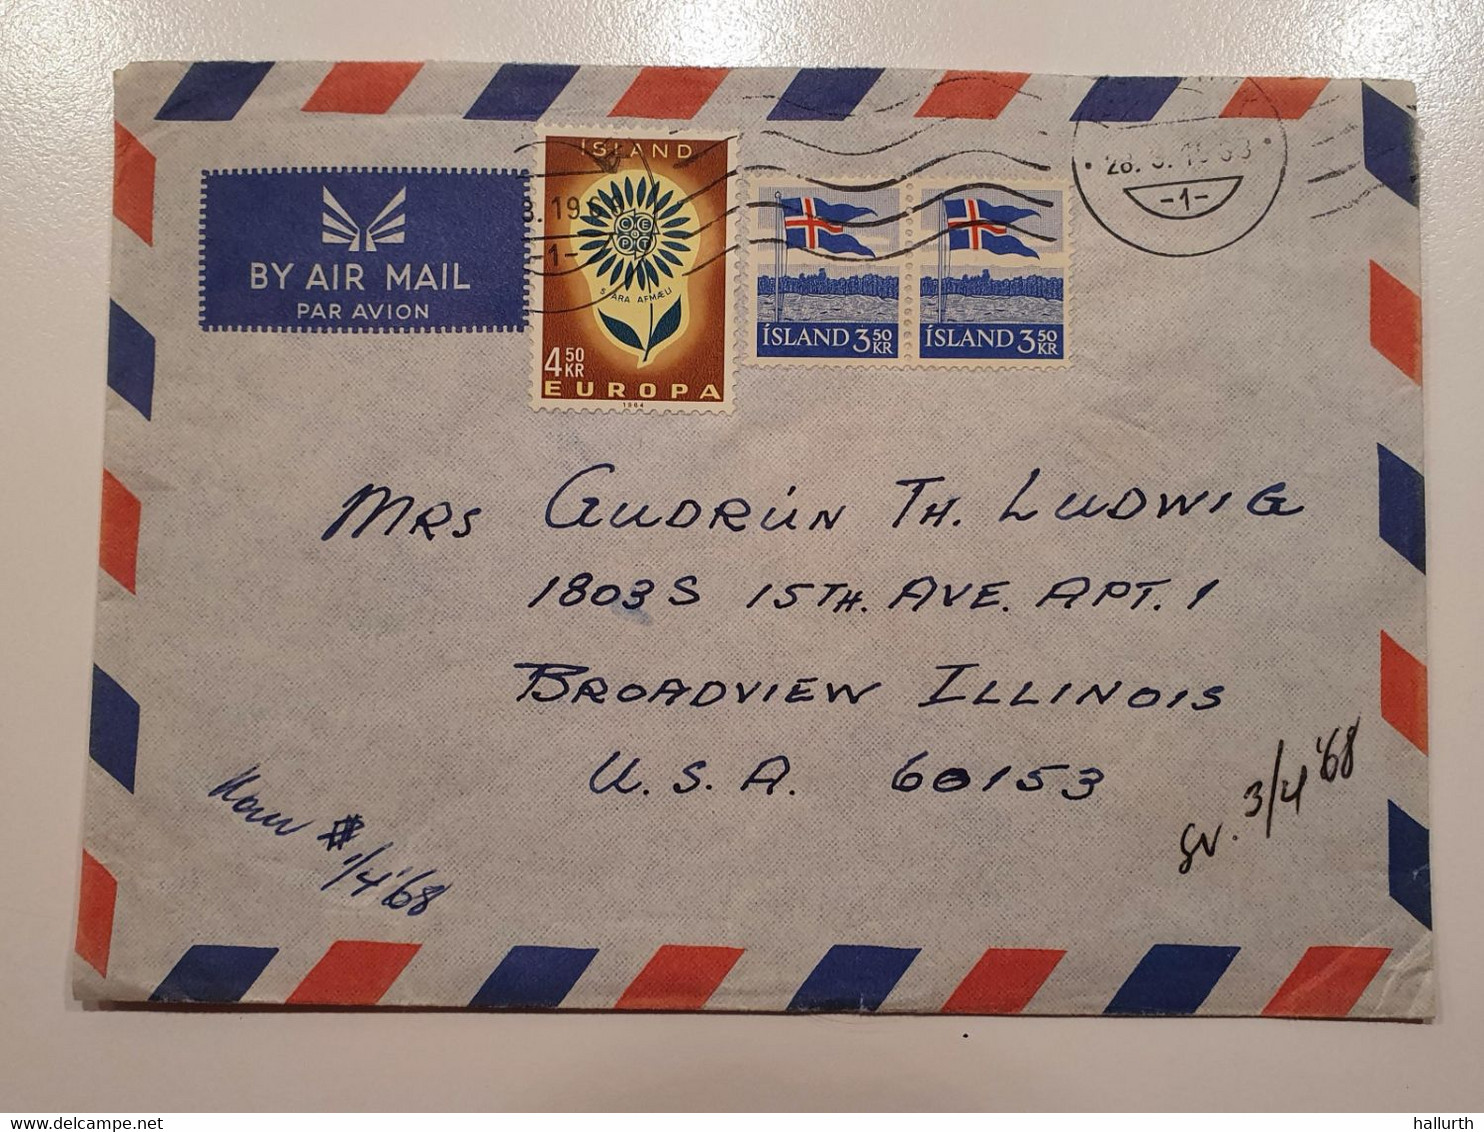 BY AIR MAIL
PAR AVION
ÍSLAND
C E P T
5 ÁRA AFMÆLI
4 50 KR
EUROPA
1964
ÍSLAND 3 50 KR
ÍSLAND 3 50 KR
8.1968
-1-
28. 3. 1968
-1-
MRS GUDRÚN TH. LUDWIG
1803 S 15TH. AVE. APT. 1
BROADVIEW ILLINOIS
U. S. A. 60153
Kom
1/4 '68
sv. 3/4 '68
delcampe.net
hallurth